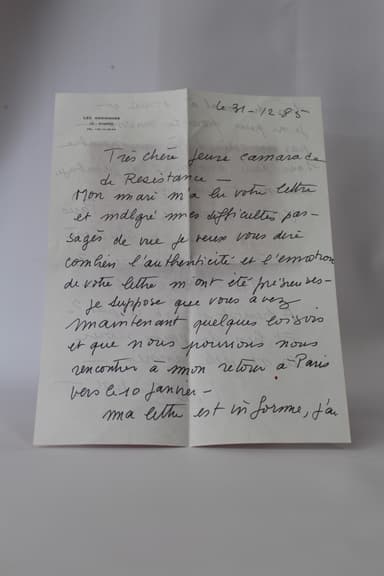 le 31-12.85
Très chère jeune camarade
de Resistance -
Mon mari m'a lu votre lettre
et malgré mes difficultés pas-
sagés de vue je veux vous dire
combien l'authenticité et l'émotion
de votre lettre m'ont été précieuses -
Je suppose que vous avez
maintenant quelques loisirs
et que nous pourrions nous
rencontrer à mon retour à Paris
vers le 10 janvier -
ma lettre est informe, j'ai